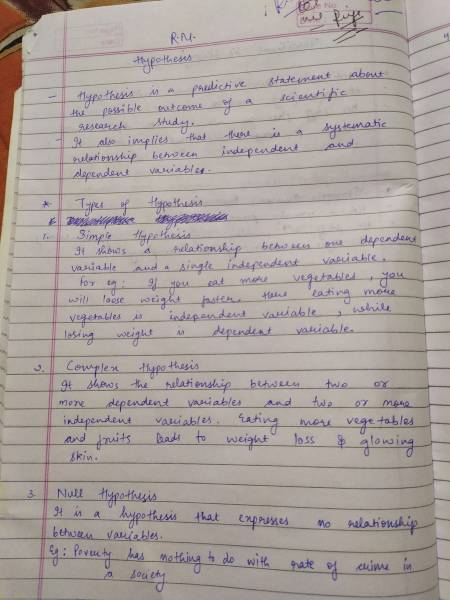 R.M.
Hypothesis
- Hypothesis is a predictive statement about
the possible outcome of a scientific
research study.
- It also implies that there is a systematic
relationship between independent and
dependent variables.
* Types of Hypothesis
1. Simple Hypothesis
It shows a relationship between one dependent
variable and a single independent variable.
for eg: If you eat more vegetables, you
will loose weight faster. Here eating more
vegetables is independent variable, while
losing weight is dependent variable.
2. Complex Hypothesis
It shows the relationship between two or
more dependent variables and two or more
independent variables. Eating more vegetables
and fruits leads to weight loss & glowing
skin.
3. Null Hypothesis
It is a hypothesis that expresses no relationship
between variables.
Eg: Poverty has nothing to do with rate of crime in
a society